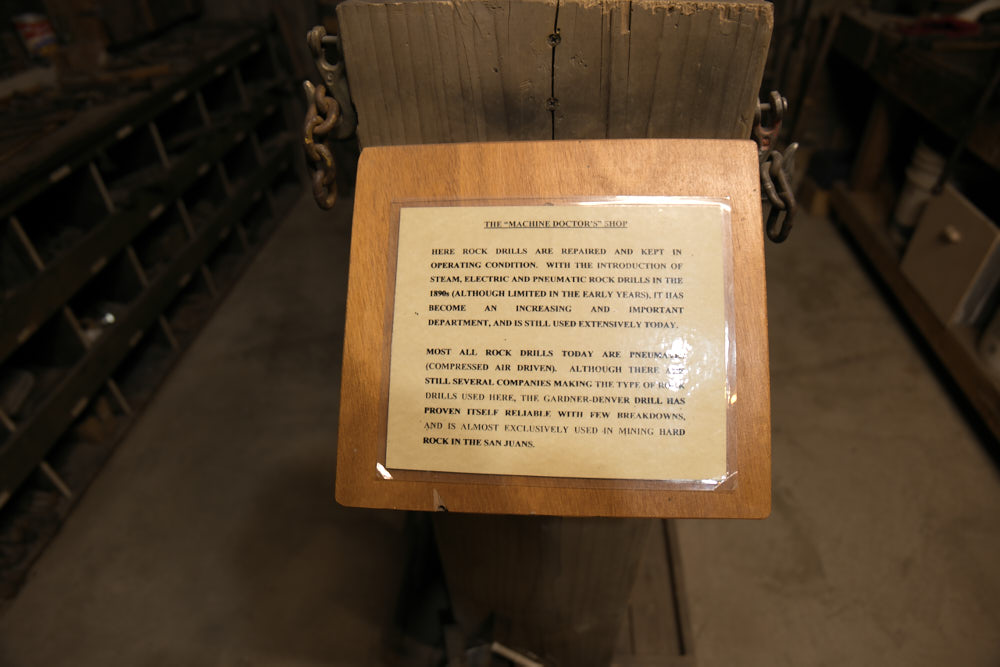 THE "MACHINE DOCTOR'S" SHOP
HERE ROCK DRILLS ARE REPAIRED AND KEPT IN
OPERATING CONDITION. WITH THE INTRODUCTION OF
STEAM, ELECTRIC AND PNEUMATIC ROCK DRILLS IN THE
1890s (ALTHOUGH LIMITED IN THE EARLY YEARS), IT HAS
BECOME AN INCREASING AND IMPORTANT
DEPARTMENT, AND IS STILL USED EXTENSIVELY TODAY.
MOST ALL ROCK DRILLS TODAY ARE PNEUMATIC
(COMPRESSED AIR DRIVEN). ALTHOUGH THERE ARE
STILL SEVERAL COMPANIES MAKING THE TYPE OF ROCK
DRILLS USED HERE, THE GARDNER-DENVER DRILL HAS
PROVEN ITSELF RELIABLE WITH FEW BREAKDOWNS,
AND IS ALMOST EXCLUSIVELY USED IN MINING HARD
ROCK IN THE SAN JUANS.